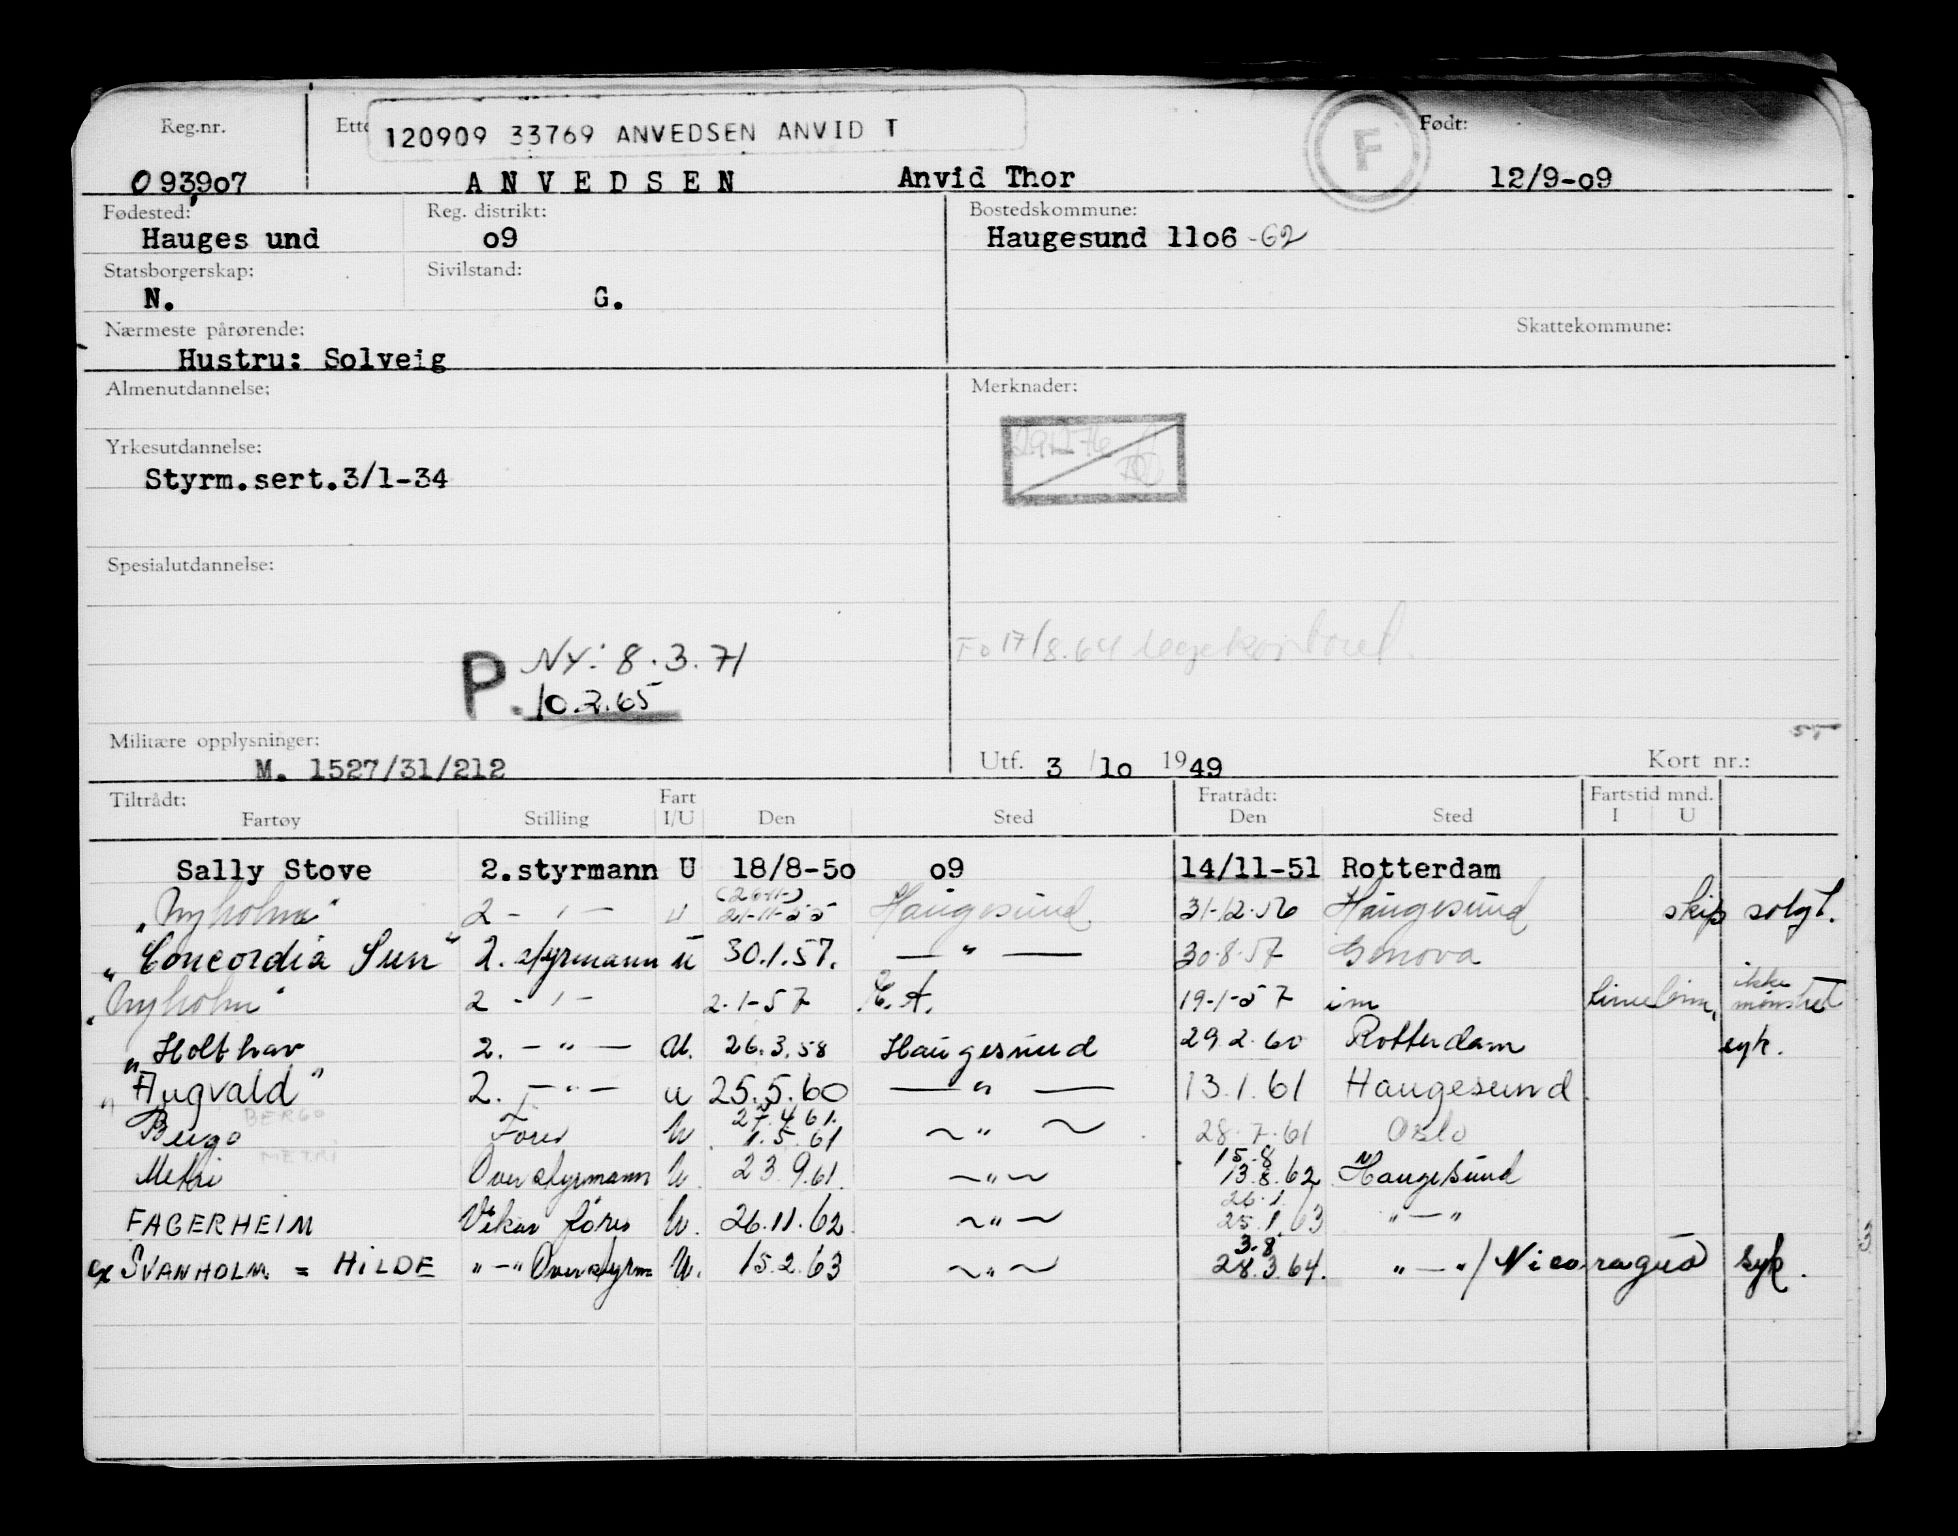 Reg.nr. Ette 120909 33769 ANVEDSEN ANVID T F Født:
093907 ANVEDSEN Anvid Thor 12/9-o9
Fødested: Reg. distrikt: Bostedskommune:
Hauges und o9 Haugesund 11o6 -62
Statsborgerskap: Sivilstand:
N. G.
Nærmeste pårørende: Skattekommune:
Hustru: Solveig
Almenutdannelse: Merknader:
Yrkesutdannelse:
Styrm.sert.3/1-34
Spesialutdannelse:
Fo 17/8.64 legekontoret.
P NY: 8.3.71
10.2.65
Militære opplysninger:
M. 1527/31/212 Utf. 3 / 1o 1949 Kort nr.:
Tiltrådt: Fart Fratrådt: Fartstid mnd.
Fartøy Stilling I/U Den Sted Den Sted I U
Sally Stove 2.styrmann U 18/8-5o o9 14/11-51 Rotterdam
"Nyholm" 2 - " - u 21-11-55 Haugesund 31-12-56 Haugesund skip solgt.
"Concordia Sun" 2. styrmann u 30.1.57. — " — 30-8-57 Genova
"Nyholm" 2 - " - 2-1-57 19-1-57 ikke mønstret
"Holthav 2. - " - U. 26.3.58 Haugesund 29.2.60 Rotterdam syk.
"Augvald" 2. - " - u 25.5.60 — " — 13.1.61 Haugesund
BERGO
Bergo Fører U 27.4.61. 1.5.61 ~ " ~ 28.7.61 Oslo
METRI
Metri Overstyrmann U. 23.9.61. ~ " ~ 15.8 13.8.62 Haugesund
FAGERHEIM Vikar fører U. 26.11.62. ~ " ~ 26.1. 25.1.63 " — "
ex SVANHOLM = HILDE " — " Overstyrm U. 15.2.63 ~ " ~ 3.8. 28.3.64. " — " / Nicaragua syk.